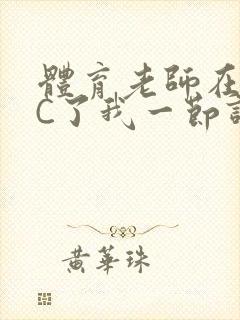 體育老師在
C了我一節
黃華珠